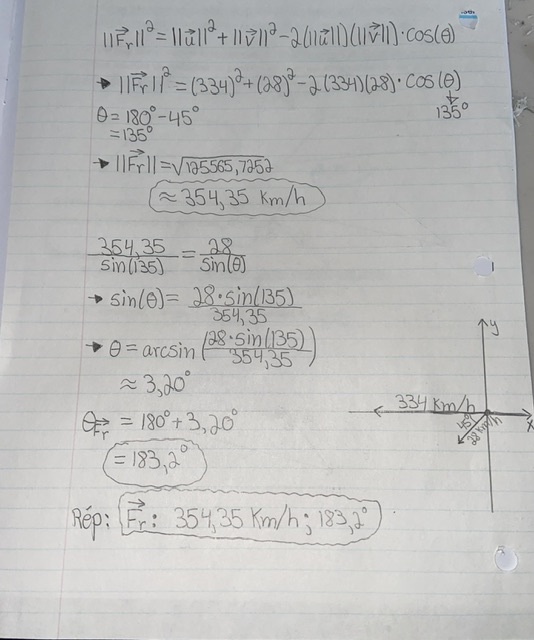 ||F⃗r||² = ||u⃗||² + ||v⃗||² - 2(||u⃗||)(||v⃗||)·cos(θ)
→ ||F⃗r||² = (334)² + (28)² - 2(334)(28)·cos(θ)
↓
135°
θ = 180° - 45°
= 135°
→ ||F⃗r|| = √125565,7252
≈ 354,35 Km/h
354,35/sin(135) = 28/sin(θ)
→ sin(θ) = 28·sin(135)/354,35
→ θ = arcsin(28·sin(135)/354,35)
≈ 3,20°
θF⃗r = 180° + 3,20°
= 183,2°
Rép: F⃗r: 354,35 Km/h; 183,2°
y
334 Km/h
x
45°
28 Km/h